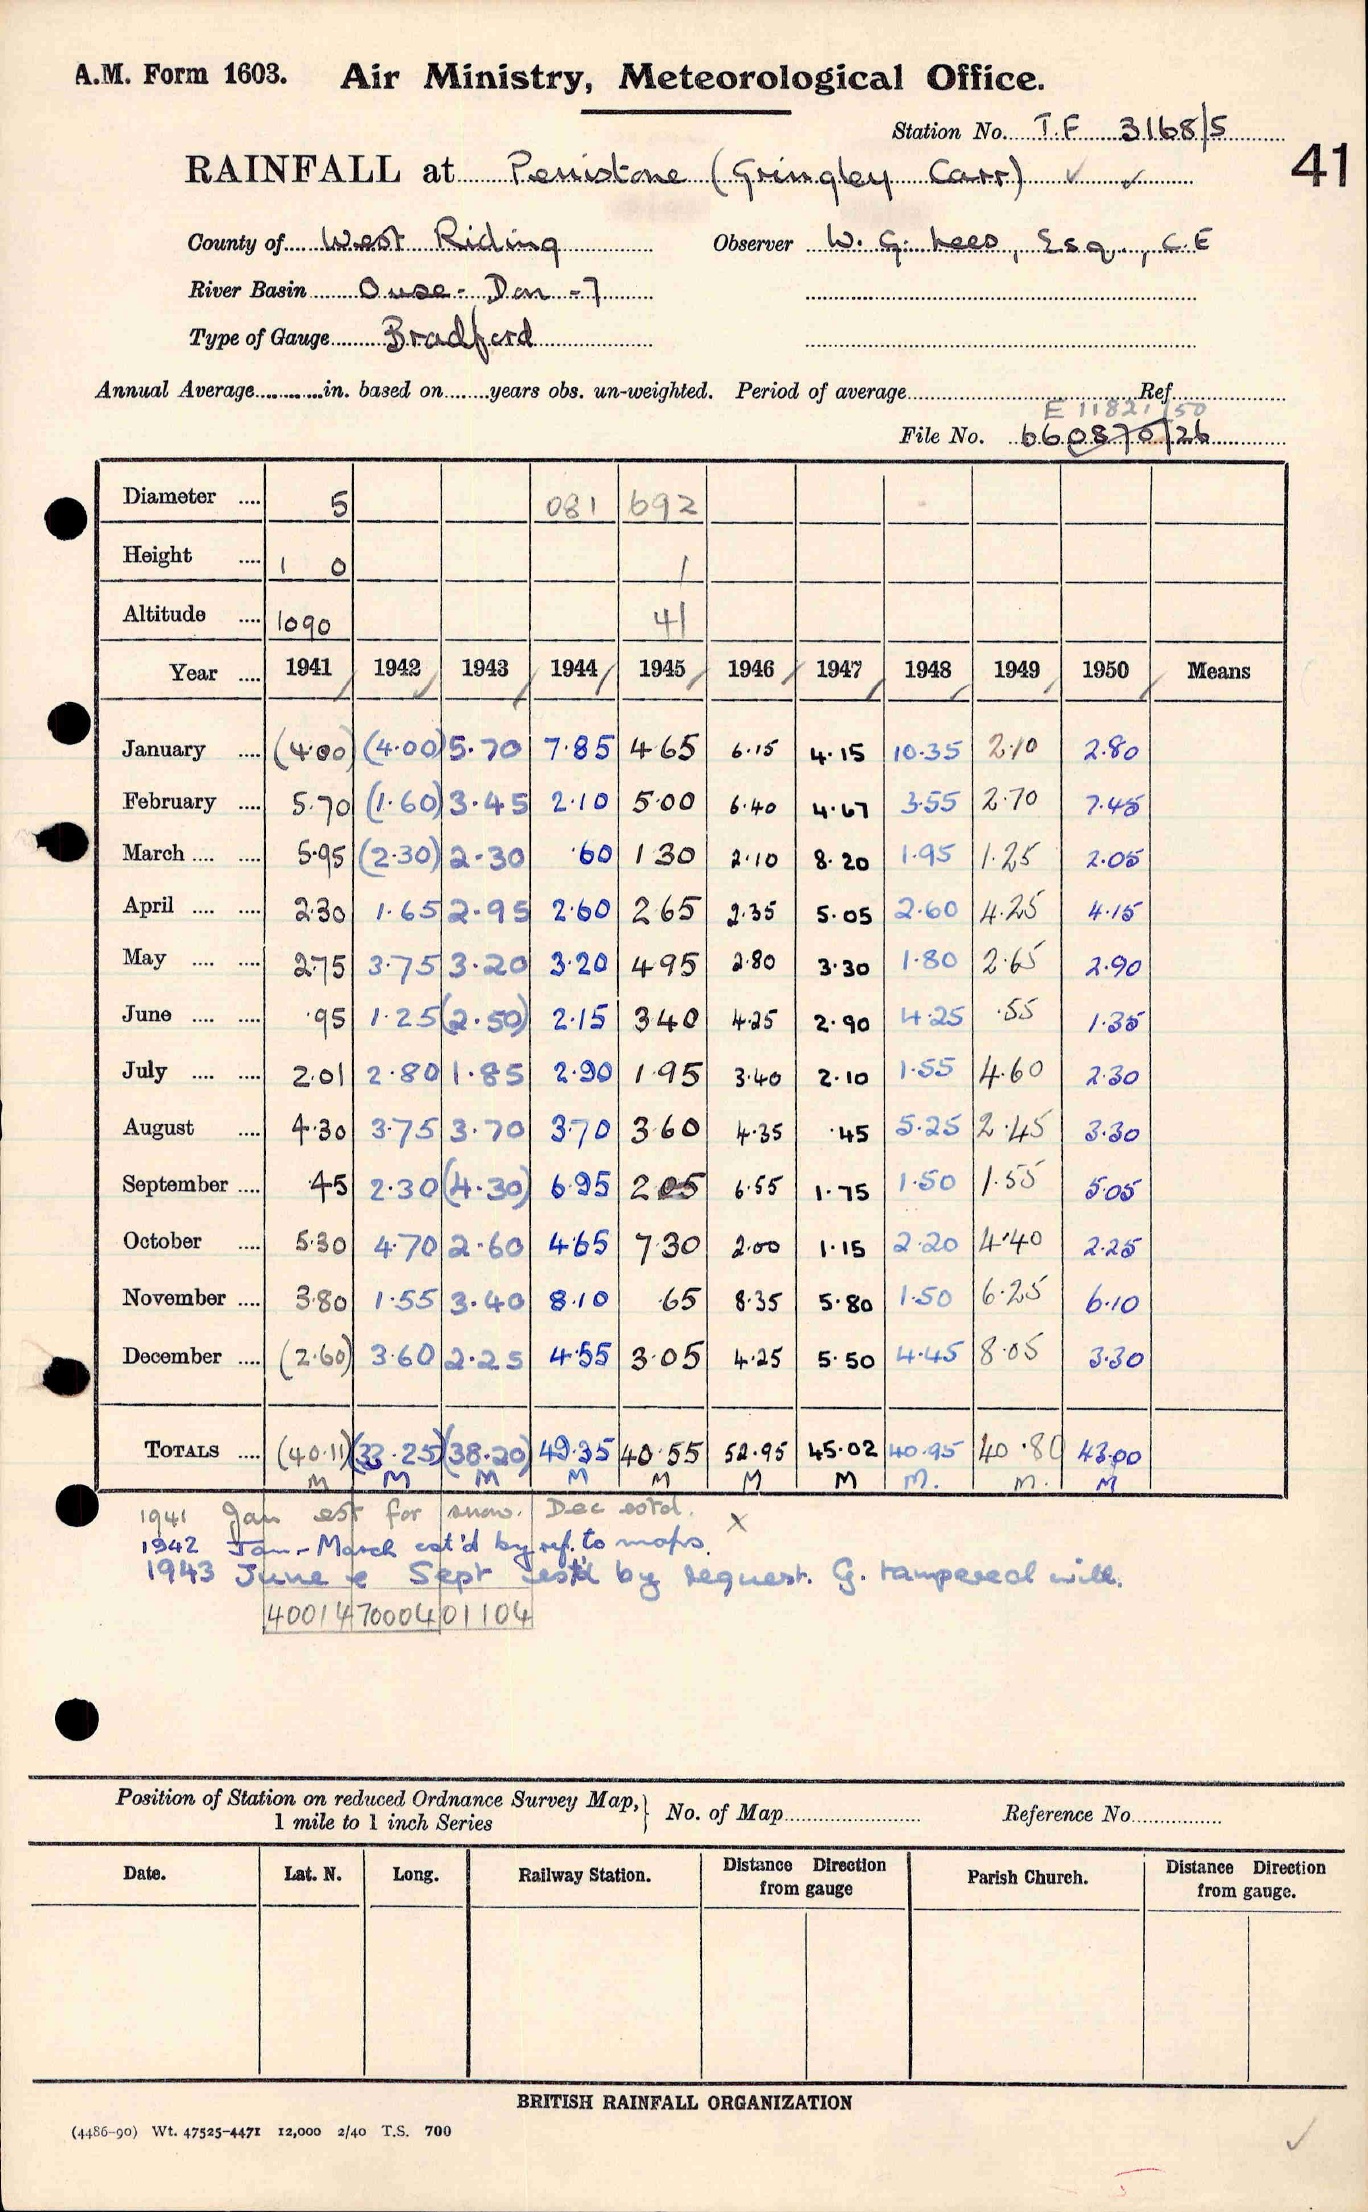 A.M. Form 1603. Air Ministry, Meteorological Office.
Station No. T.F 3168/5
41
RAINFALL at Penistone (Gringley Carr) ✓ ✓
County of West Riding Observer W. G. Lees, Esq., C.E
River Basin Ouse - Don - 7
Type of Gauge Bradford
Annual Average............in. based on.......years obs. un-weighted. Period of average Ref
E 11821/50
File No. 660870/26
Diameter .... 5 081 692
Height .... 1 0 1
Altitude .... 1090 41
Year .... 1941 1942 1943 1944 1945 1946 1947 1948 1949 1950 Means
January .... (4.00) (4.00) 5.70 7.85 4.65 6.15 4.15 10.35 2.10 2.80
February .... 5.70 (1.60) 3.45 2.10 5.00 6.40 4.67 3.55 2.70 7.45
March .... .... 5.95 (2.30) 2.30 .60 1.30 2.10 8.20 1.95 1.25 2.05
April .... .... 2.30 1.65 2.95 2.60 2.65 2.35 5.05 2.60 4.25 4.15
May .... .... 2.75 3.75 3.20 3.20 4.95 2.80 3.30 1.80 2.65 2.90
June .... .... .95 1.25 (2.50) 2.15 3.40 4.25 2.90 4.25 .55 1.35
July .... .... 2.01 2.80 1.85 2.90 1.95 3.40 2.10 1.55 4.60 2.30
August .... 4.30 3.75 3.70 3.70 3.60 4.35 .45 5.25 2.45 3.30
September .... .45 2.30 (4.30) 6.95 2.05 6.55 1.75 1.50 1.55 5.05
October .... 5.30 4.70 2.60 4.65 7.30 2.00 1.15 2.20 4.40 2.25
November .... 3.80 1.55 3.40 8.10 .65 8.35 5.80 1.50 6.25 6.10
December .... (2.60) 3.60 2.25 4.55 3.05 4.25 5.50 4.45 8.05 3.30
TOTALS .... (40.11) (33.25) (38.20) 49.35 40.55 52.95 45.02 40.95 40.80 43.00
M M M M M M M M. M. M
1941 Jan est for snow. Dec estd. X
1942 Jan - March est'd by ref. to maps.
1943 June & Sept est'd by request. G. tampered with.
40014 70004 01104
Position of Station on reduced Ordnance Survey Map, 1 mile to 1 inch Series } No. of Map Reference No.
Date. Lat. N. Long. Railway Station. Distance Direction from gauge Parish Church. Distance Direction from gauge.
BRITISH RAINFALL ORGANIZATION
(4486-90) Wt. 47525-4471 12,000 2/40 T.S. 700